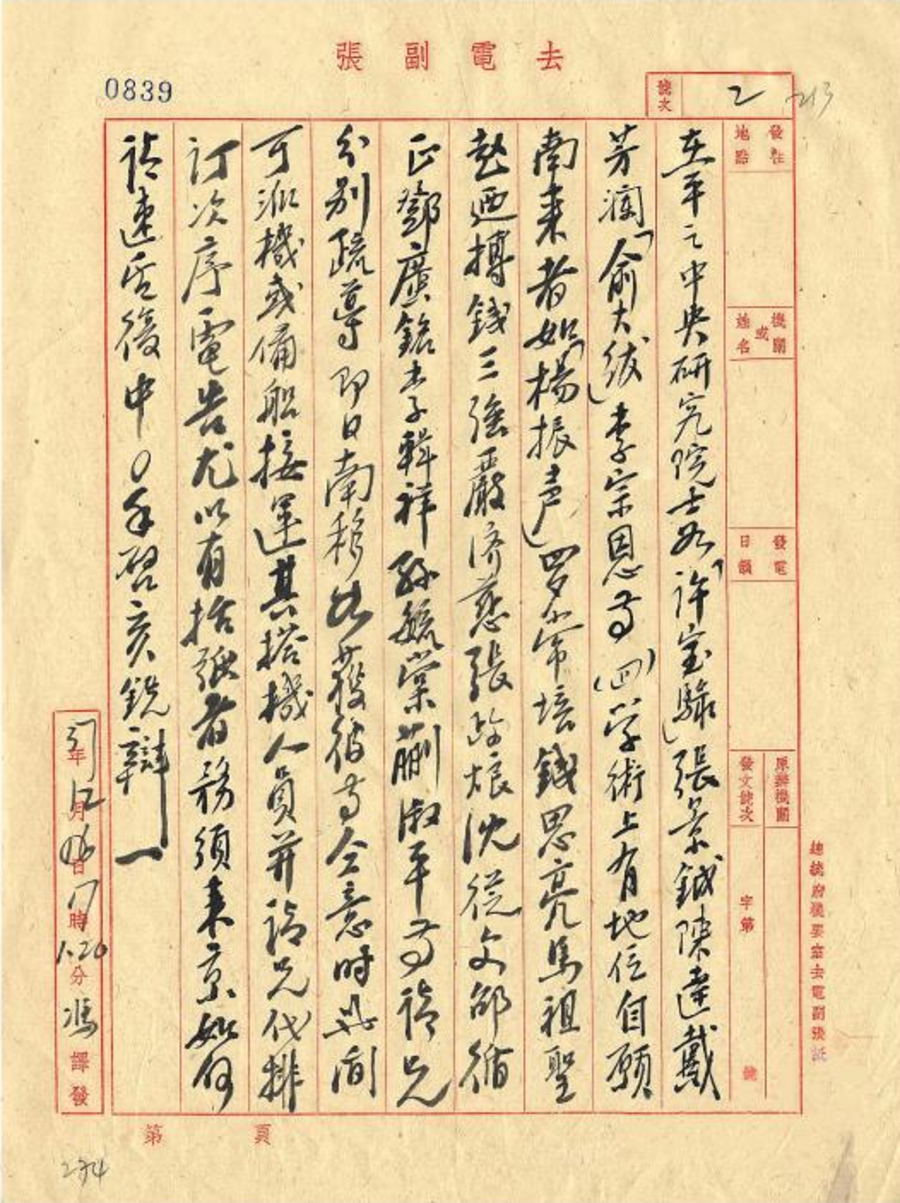 去電副張
0839
號次
2
213
發往地點
機關或姓名
發電日韻
原辦機關
發文號次
字第
號
在平之中央研究院士如「許寶騄」張景鉞陳達戴
芳瀾「俞大紱」李宗恩等(四)學術上有地位自願
南來者如「楊振声」羅常培錢思亮馬祖聖
趙迺摶錢三強嚴济慈張政烺沈從文邵循
正鄧廣銘李輯祥孫毓棠蒯淑平等請兄
分別疏導即日南移如獲彼等全意時此間
可派機或備船接運其搭機人員并請兄代排
訂次序電告尤以有括弧者務須来京如何
請速丞復中○手啓亥銑辯一
年月日時
1.20分馮譯發
總統府機要室去電副張紙
第 頁
274